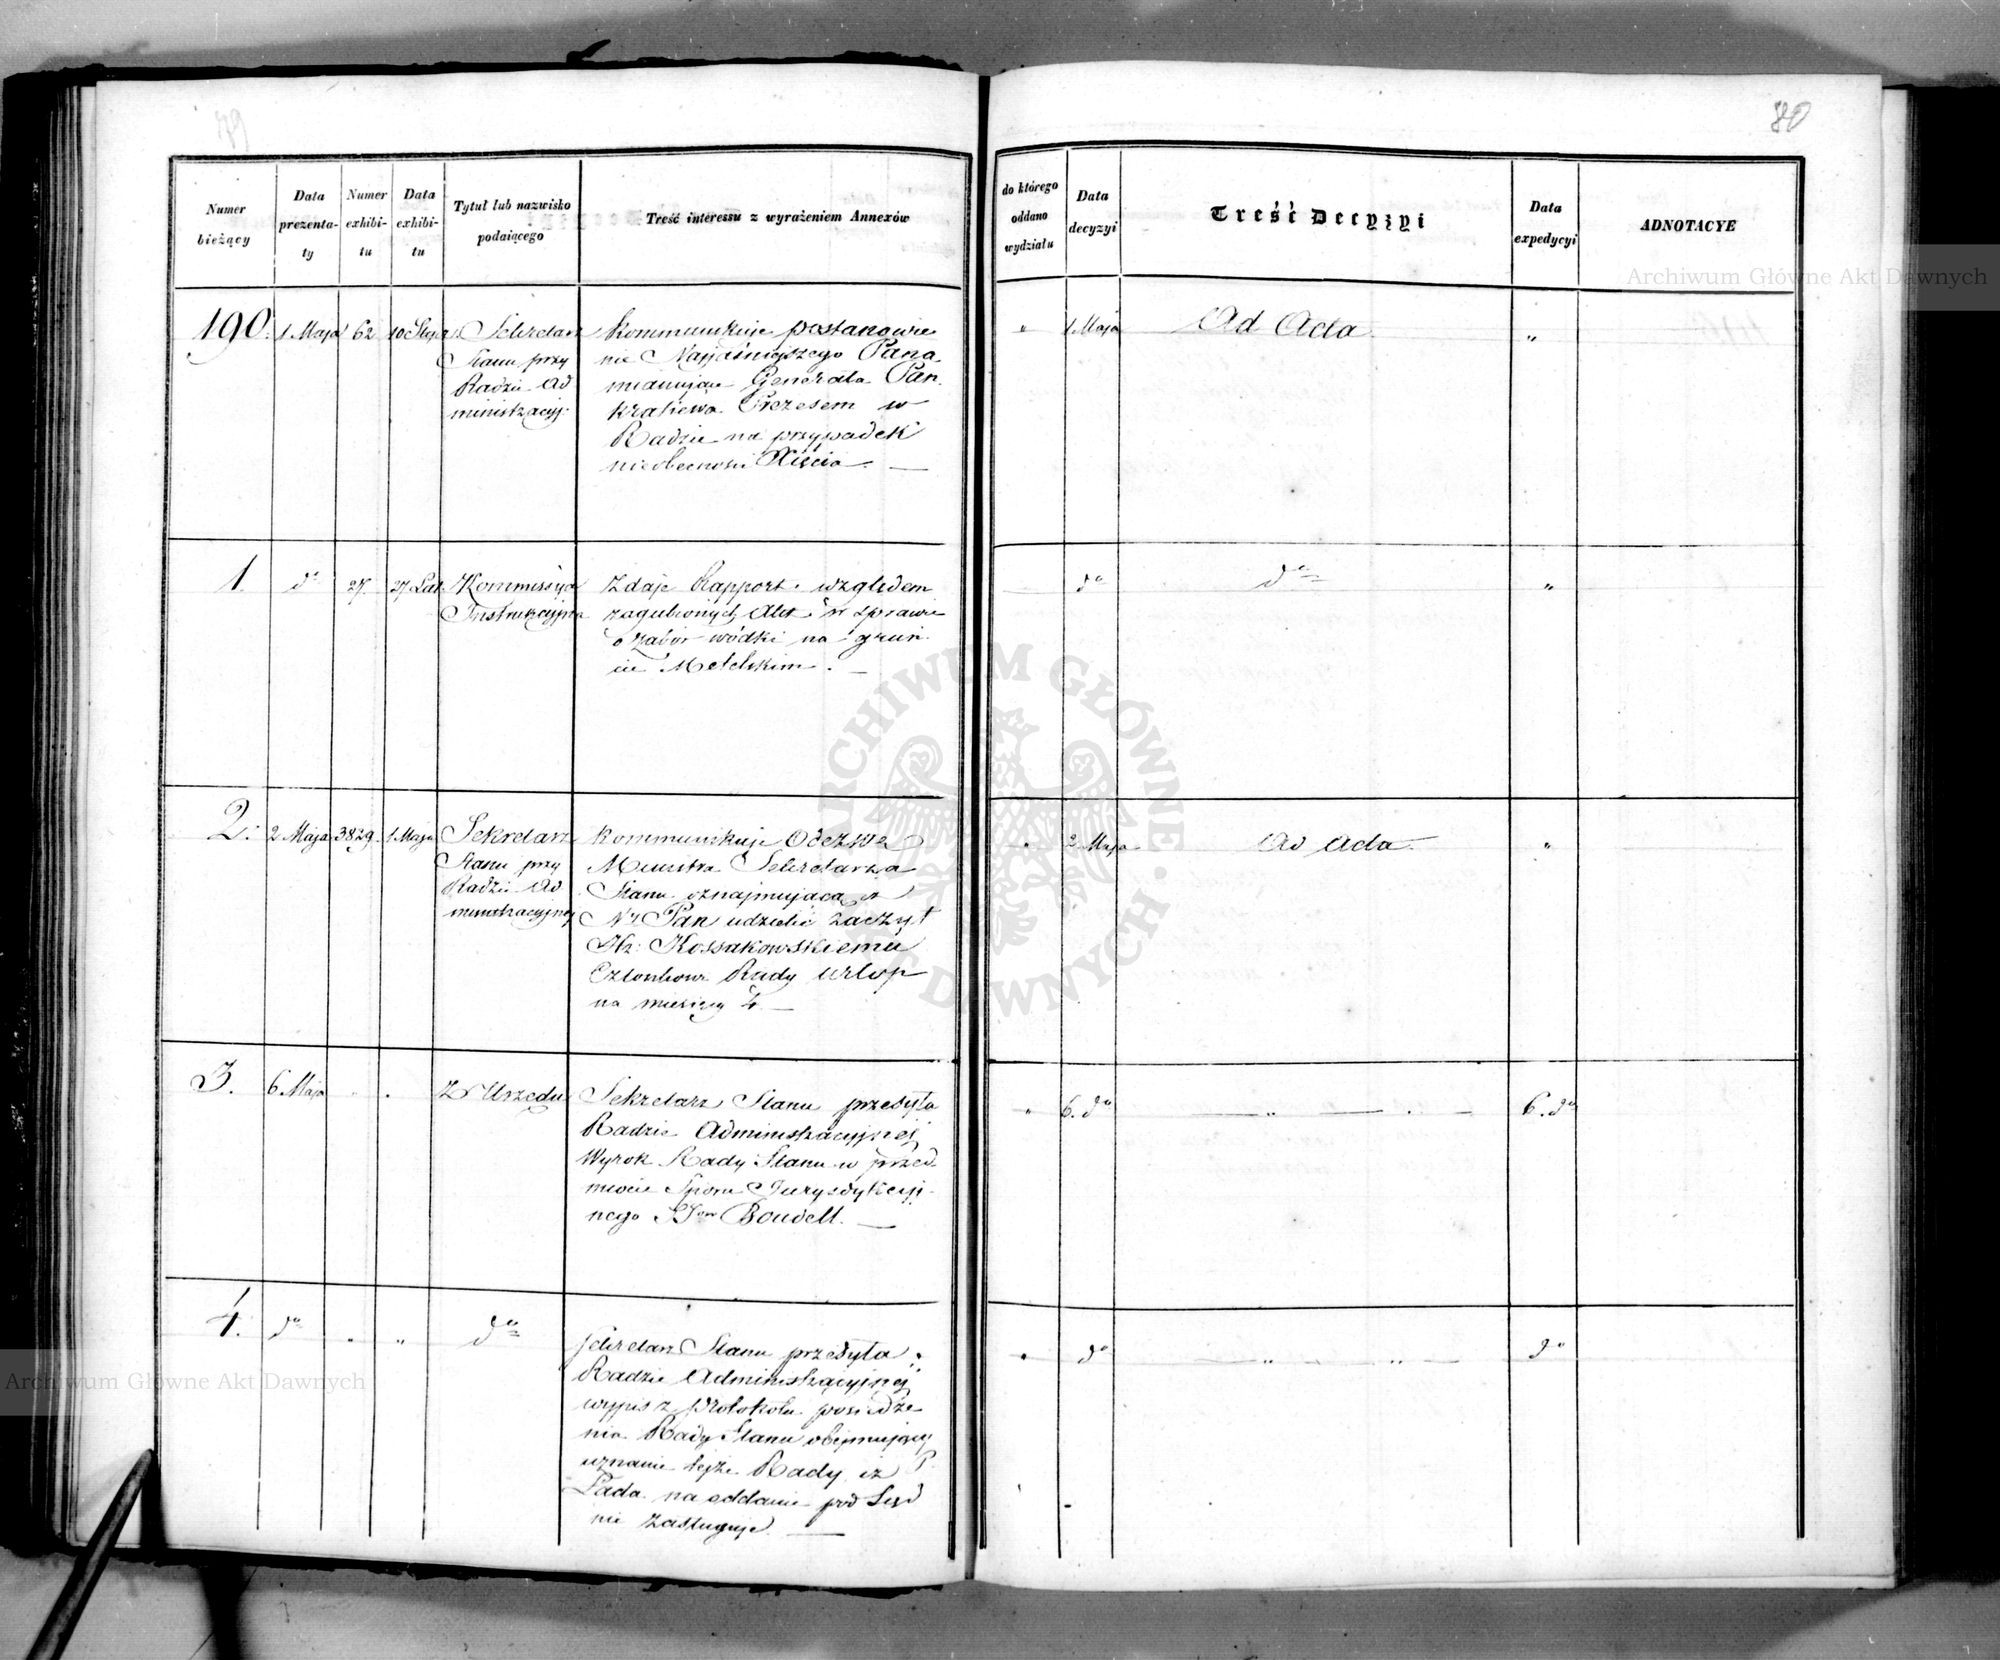 79
80
Numer bieżący
Data prezentaty
Numer exhibitu
Data exhibitu
Tytuł lub nazwisko podaiącego
Treść interessu z wyrażeniem Annexów
do którego oddano wydziału
Data decyzyi
Treść Decyzyi
Data expedycyi
ADNOTACYE
190. 1 Maja 62
Sekretarz
Stanu przy
Radzie Ad
ministracyj.
Kommunikuje postanowie
nie Najjaśniejszego Pana
mianujące Generała Pan
kratiewa Prezesem w
Radzie na przypadek
nieobecności Xięcia. —
" 1 Maja Ad Acta. "
1. do 27. 27
Kommissya
Instrukcyjna
Zdaje Rapport względem
zagubionych Akt w sprawie
o zabór wódki na grun
cie Metelskim. —
do do "
2. 2 Maja 3829. 1 Maja
Sekretarz
Stanu przy
Radzie Ad
ministracyjnej
Kommunikuje Odezwę
Ministra Sekretarza
Stanu oznajmującą iż
Ny Pan udzielić raczył
Hr: Kossakowskiemu
Członkowi Rady urlop
na miesięcy 4. —
" 2 Maja Ad Acta. "
3. 6. Maja " "
Z Urzędu
Sekretarz Stanu przesyła
Radzie Administracyjnej
Wyrok Rady Stanu w przed
miocie Sporu Jurysdykcyj
nego SSow Boudell. —
" 6. do — " — " — 6. do
4. do " " do
Sekretarz Stanu przesyła
Radzie Administracyjnej
wypis z Protokółu posiedze
nia Rady Stanu obejmujący
uznanie tejże Rady iż P.
Łada na oddanie pod Sąd
nie zasługuje. —
" do — " — " — do
Archiwum Główne Akt Dawnych
Archiwum Główne Akt Dawnych
ARCHIWUM GŁÓWNE • AKT DAWNYCH •